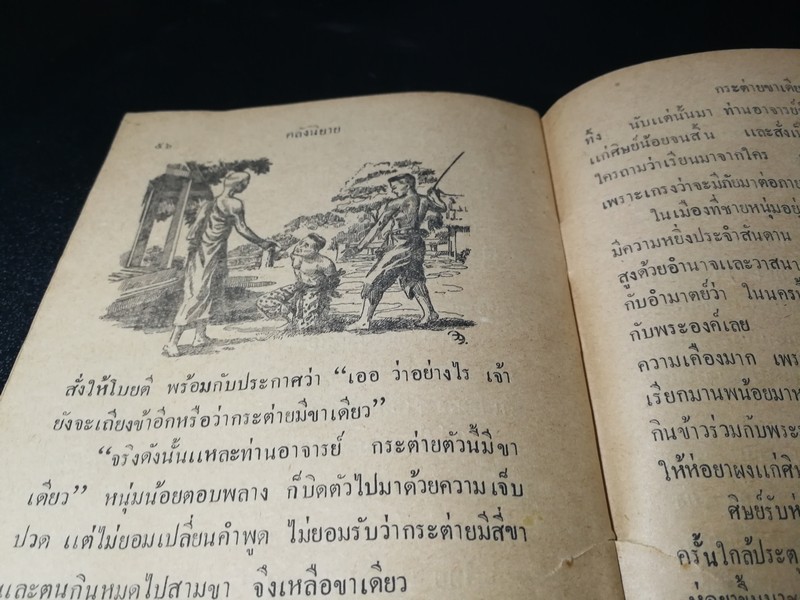 ๕๖
คลังนิยาย
สั่งให้โบยตี พร้อมกับประกาศว่า “เออ ว่าอย่างไร เจ้า
ยังจะเถียงข้าอีกหรือว่ากระต่ายมีขาเดียว”
“จริงดังนั้นแหละท่านอาจารย์ กระต่ายตัวนี้มีขา
เดียว” หนุ่มน้อยตอบพลาง ก็บิดตัวไปมาด้วยความเจ็บ
ปวด แต่ไม่ยอมเปลี่ยนคำพูด ไม่ยอมรับว่ากระต่ายมีสี่ขา
และตนกินหมดไปสามขา จึงเหลือขาเดียว
กระต่ายขาเดีย
ทั้ง นับแต่นั้นมา ท่านอาจารย์
แก่ศิษย์น้อยจนสิ้น และสั่ง
ใครถามว่าเรียนมาจากใคร
เพราะเกรงว่าจะมีภัยมาต่อภาย
ในเมืองที่ชายหนุ่มอยู่
มีความหยิ่งประจำสันดาน
สูงด้วยอำนาจและวาสนา
กับอำมาตย์ว่า ในนคร
กับพระองค์เลย
ความเคืองมาก เพร
เรียกมานพน้อยมา
กินข้าวร่วมกับพระ
ให้ห่อยาผงแก่ศิษ
ศิษย์รับห่
ครั้นใกล้ประตู